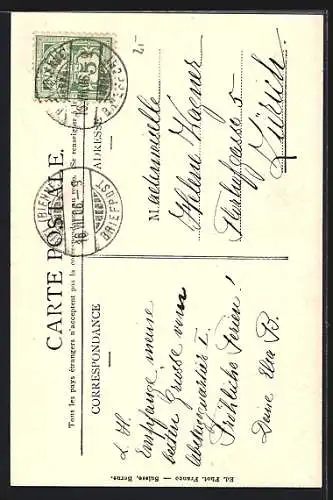 CARTE POSTALE.
Tous les pays étrangers n'acceptent pas la correspondance au recto. Se renseigner à la poste
CORRESPONDANCE
ADRESSE
L. H.
Empfange meine
besten Grüsse vom
I.
Fröhliche Ferien!
Deine Elsa B.
Mademoiselle
Helene Wagner
5
Zürich.
2.-
BRIEFPOST
5
Ed. Phot. Franco — Suisse, Berne.